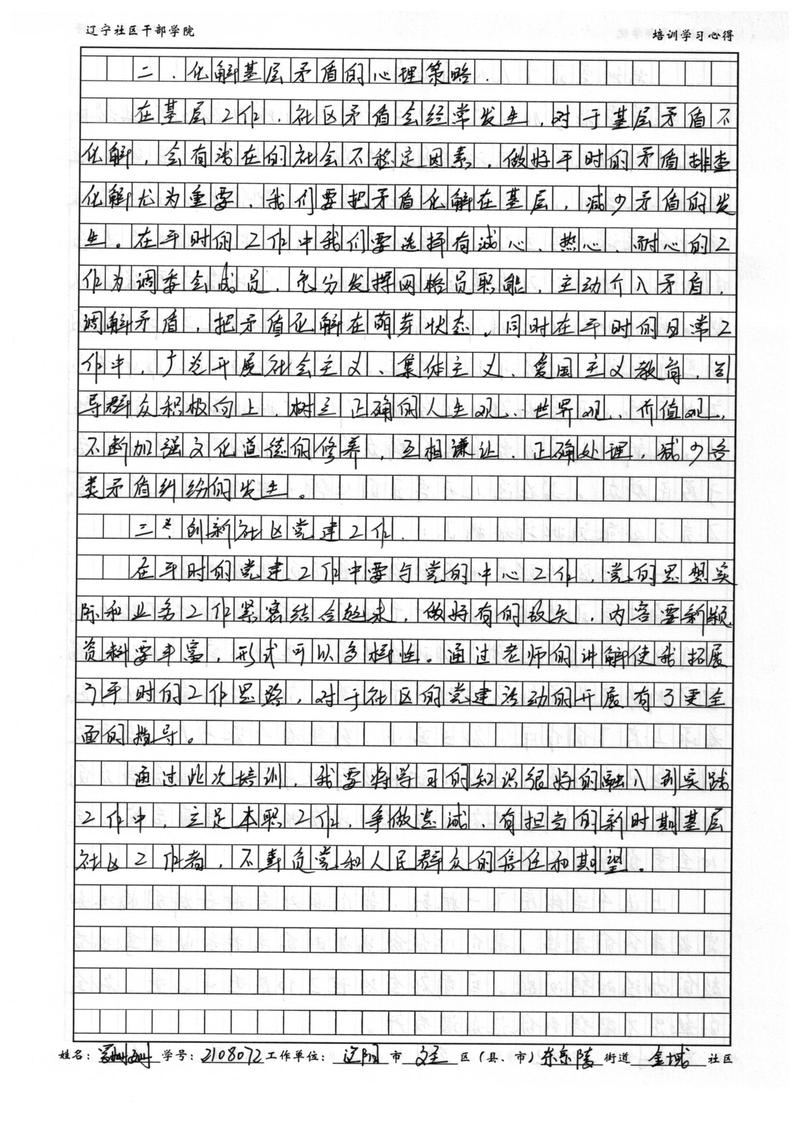 辽宁社区干部学院
培训学习心得
二、化解基层矛盾的心理策略.
在基层工作,社区矛盾会经常发生,对于基层矛盾不
化解,会有潜在的社会不稳定因素,做好平时的矛盾排查
化解尤为重要、我们要把矛盾化解在基层,减少矛盾的发
生。在平时的工作中我们要选择有诚心、热心、耐心的工
作为调委会成员,充分发挥网格员职能,主动介入矛盾,
调解矛盾,把矛盾化解在萌芽状态。同时在平时的日常工
作中,广泛开展社会主义、集体主义、爱国主义教育,引
导群众积极向上,树立正确的人生观、世界观、价值观,
不断加强文化道德的修养,互相谦让、正确处理,减少各
类矛盾纠纷的发生。
三、创新社区党建工作.
在平时的党建工作中要与党的中心工作,党的思想实
际和业务工作紧密结合起来,做好有的放矢,内容要新颖
资料要丰富,形式可以多样性。通过老师的讲解使我拓展
了平时的工作思路,对于社区的党建活动的开展有了更全
面的指导。
通过此次培训,我要将学习的知识很好的融入到实践
工作中,立足本职工作,争做忠诚、有担当的新时期基层
社区工作者,不辜负党和人民群众的信任和期望。
姓名: 学号:2108072 工作单位:辽阳 市 文圣 区(县、市)东京陵 街道 金城 社区